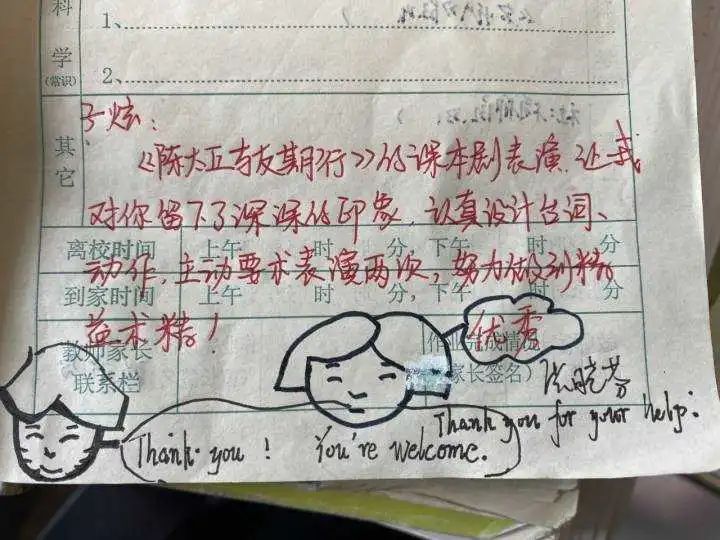 科
学
(常识)
1、
2、
其
它
子炫：
《陈太丘与友期行》的课本剧表演，让我
对你留下了深深的印象，认真设计台词、
离校时间 上午 时 分，下午 时 分
动作，主动要求表演两次，努力做到精
到家时间 上午 时 分，下午 时 分
益求精！
优秀
教师家长
联系栏
作业完成情况
家长签名）
Thank you for your help.
Thank you! You're welcome.